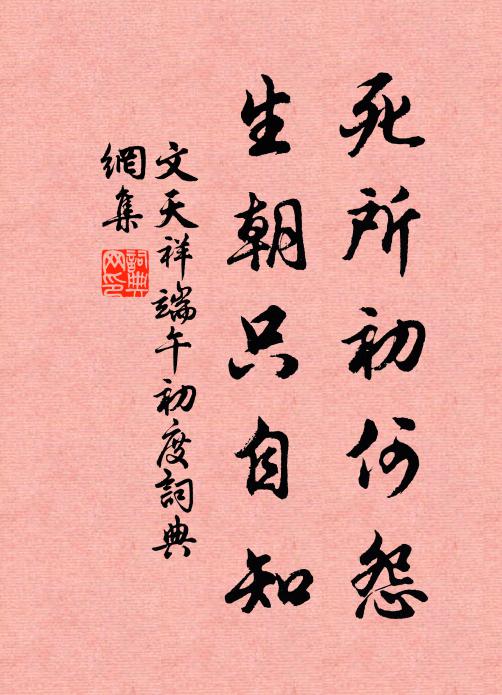 死所初何怨
生朝只自知
文天祥端午初度詞典
網集
詞典网印